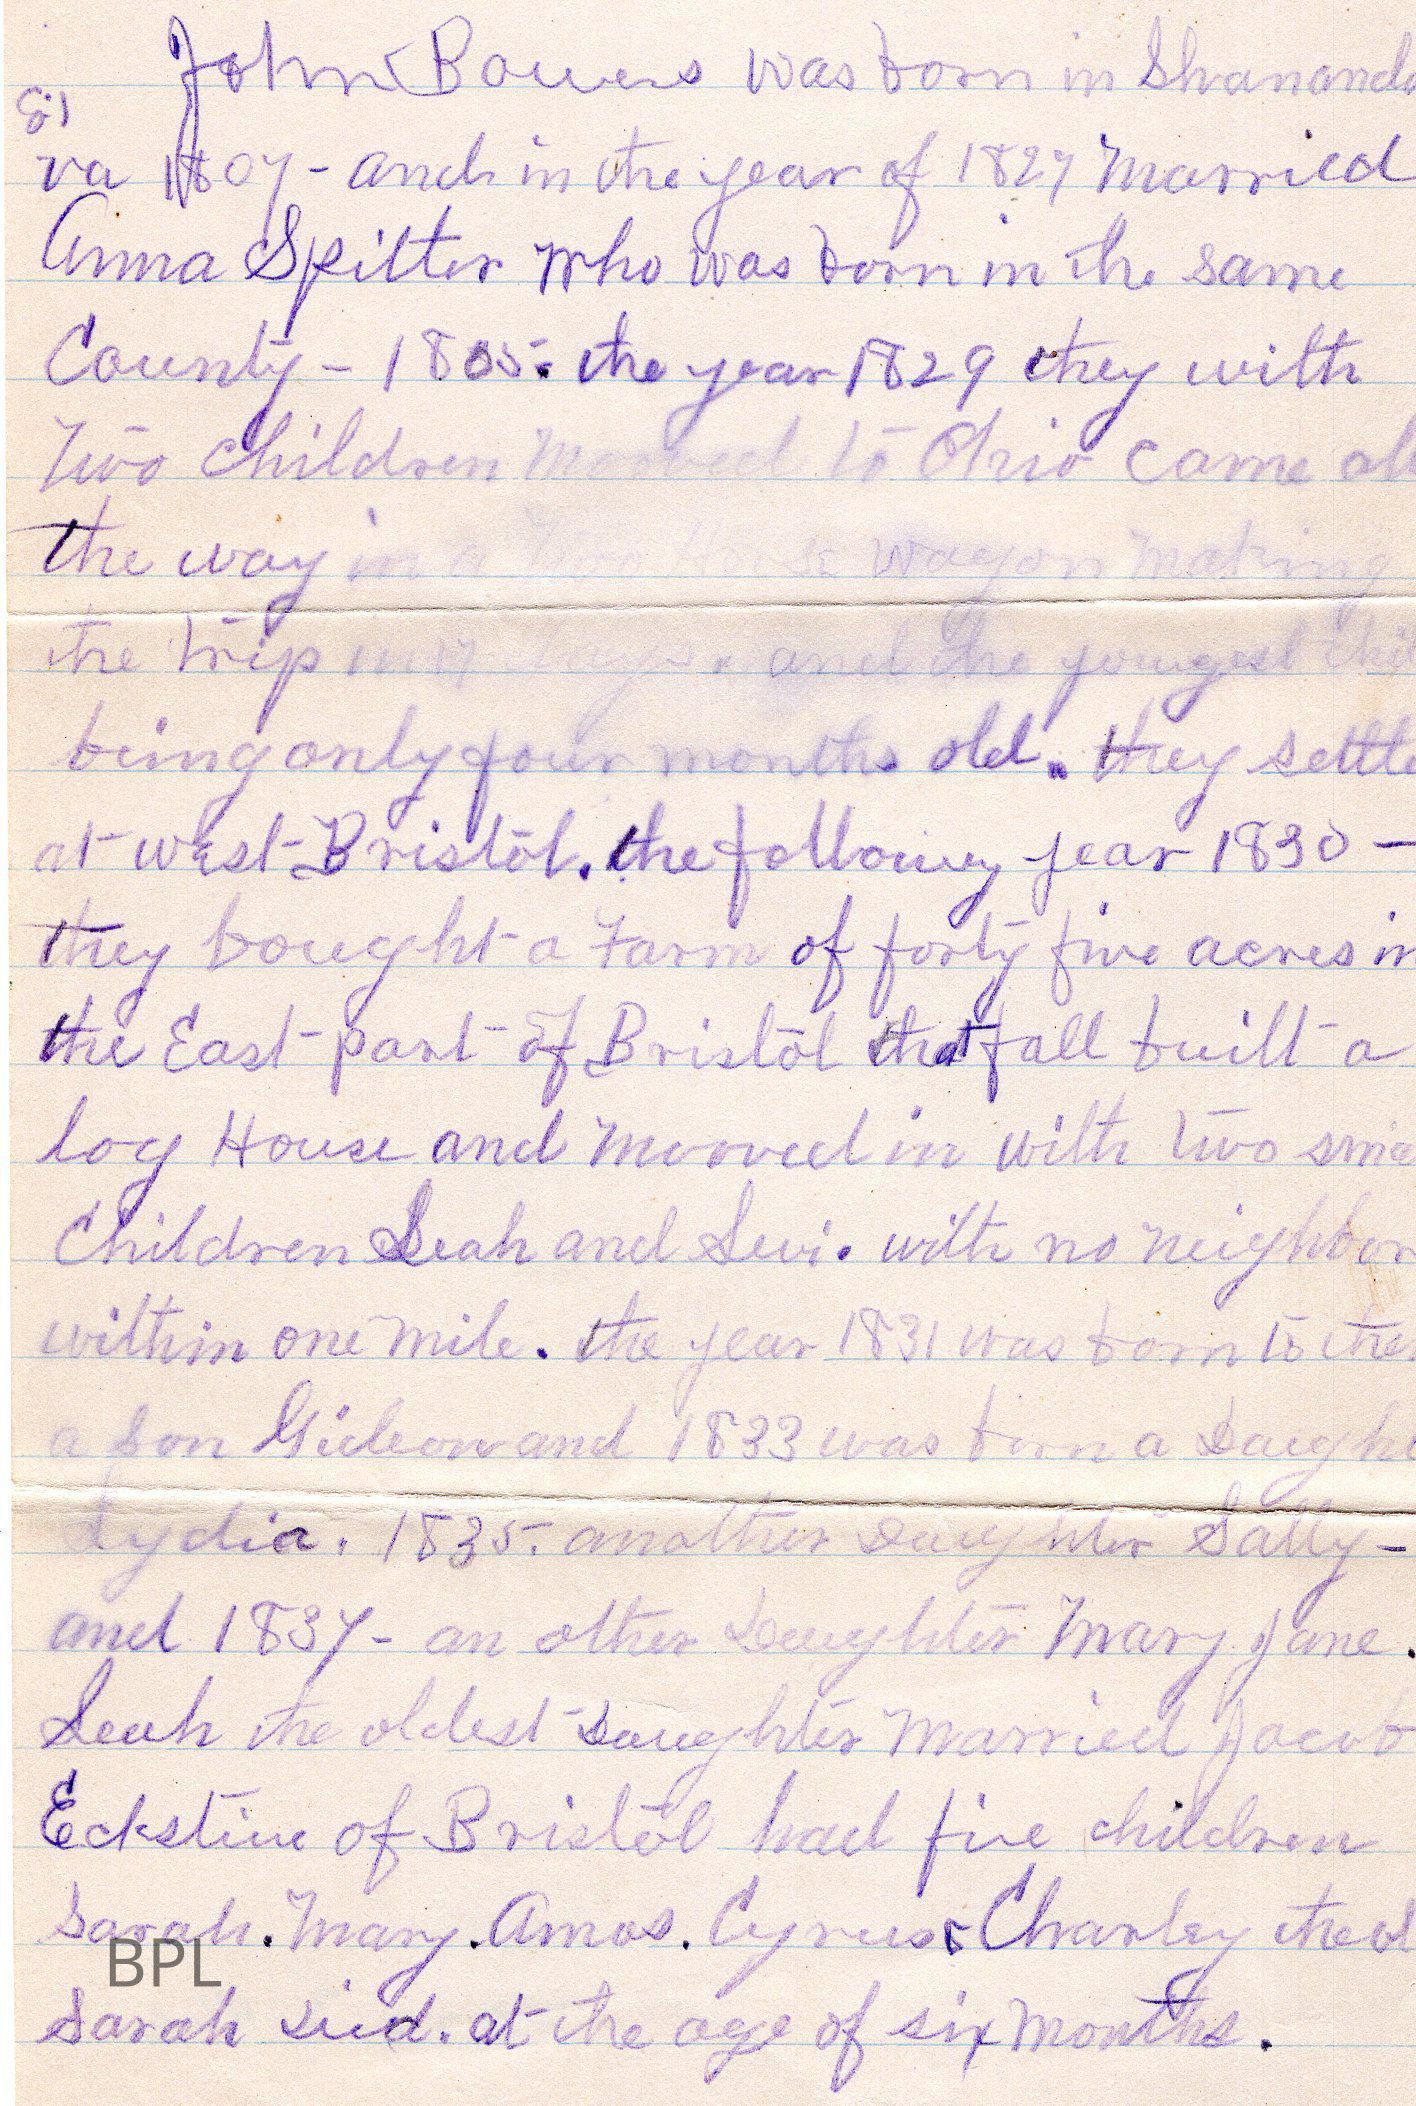 John Bowers was born in Shanando
va 1807 - and in the year of 1827 Married
Anna Spitler who was born in the same
County - 1805. the year 1829 they with
Two children mooved to Ohio came all
the way in a wagon making
the trip in 17 days. and the youngest chil
being only four months old. they settle
at west Bristol. the following year 1830 -
they bought a Farm of forty five acres in
the East part of Bristol that fall built a
log House and mooved in with two smal
Children Leah and Levi. with no neighbor
within one mile. the year 1831 was born to the
a son Gideon and 1833 was born a Daught
Lydia. 1835. another Daughter Sally -
and 1837 - an other Daughter Mary Jane.
Leah the oldest Daughter Married Jacob
Eckstine of Bristol had five children
Sarah. Mary. Amos. Cyrus & Charley the ol
BPL
Sarah died. at the age of six months.